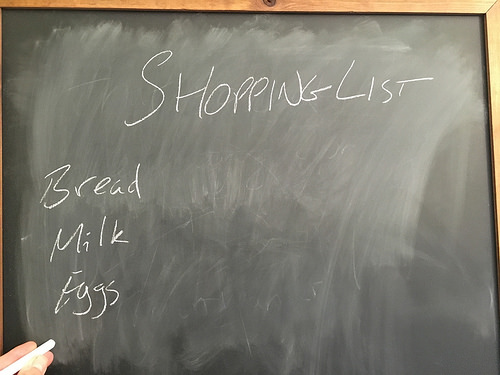 SHOPPING LIST
Bread
Milk
Eggs